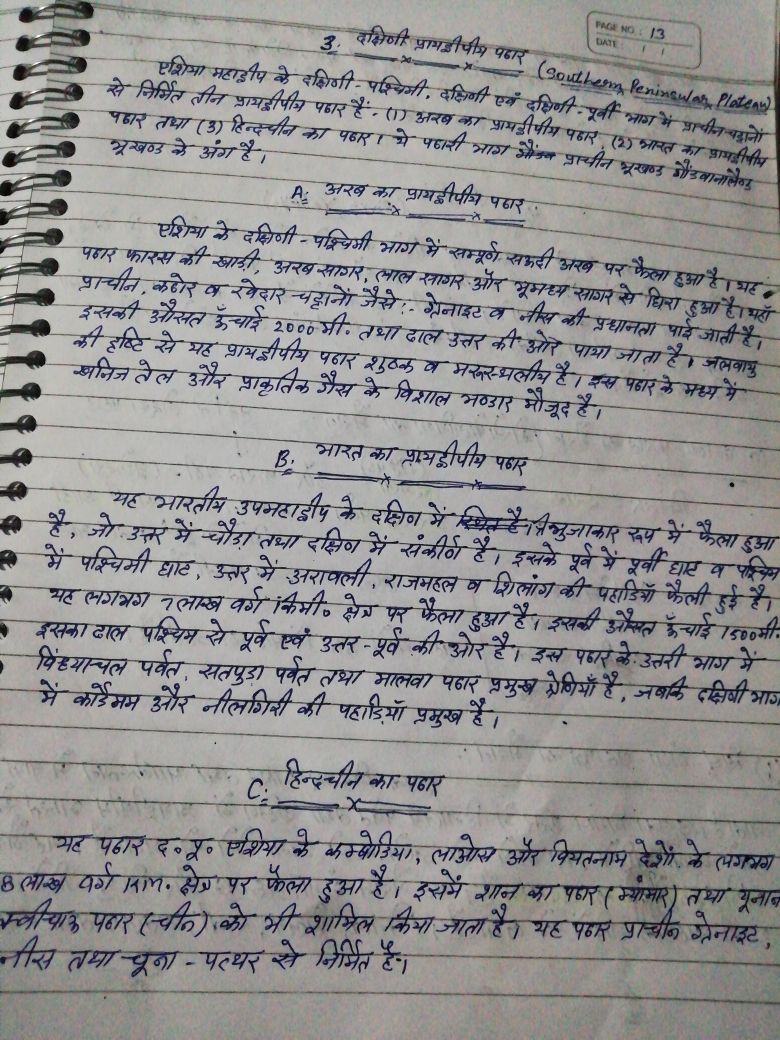 PAGE NO.: 13
DATE: / /
3. दक्षिणी प्रायद्वीपीय पठार
(Southern Peninsular Plateau)
एशिया महाद्वीप के दक्षिणी-पश्चिमी, दक्षिणी एवं दक्षिणी-पूर्वी भाग में प्राचीन चट्टानों
से निर्मित तीन प्रायद्वीपीय पठार हैं - (1) अरब का प्रायद्वीपीय पठार, (2) भारत का प्रायद्वीपीय
पठार तथा (3) हिन्दचीन का पठार। ये पठारी भाग प्राचीन भूखण्ड गौंडवानालैण्ड
भूखण्ड के अंग है।
A: अरब का प्रायद्वीपीय पठार
एशिया के दक्षिणी-पश्चिमी भाग में सम्पूर्ण सऊदी अरब पर फैला हुआ है। यह
पठार फारस की खाडी, अरब सागर, लाल सागर और भूमध्य सागर से घिरा हुआ है। यहाँ
प्राचीन, कठोर व रवेदार चट्टानों जैसे:- ग्रेनाइट व नीस की प्रधानता पाई जाती है।
इसकी औसत ऊँचाई 2000 मी. तथा ढाल उत्तर की ओर पाया जाता है। जलवायु
की दृष्टि से यह प्रायद्वीपीय पठार शुष्क व मरूस्थलीय है। इस पठार के मध्य में
खनिज तेल और प्राकृतिक गैस के विशाल भण्डार मौजूद है।
B: भारत का प्रायद्वीपीय पठार
यह भारतीय उपमहाद्वीप के दक्षिण में त्रिभुजाकार रूप में फैला हुआ
है, जो उत्तर में चौड़ा तथा दक्षिण में संकीर्ण है। इसके पूर्व में पूर्वी घाट व पश्चिम
में पश्चिमी घाट, उत्तर में अरावली, राजमहल व शिलांग की पहाडियाँ फैली हुई है।
यह लगभग 7 लाख वर्ग किमी० क्षेत्र पर फैला हुआ है। इसकी औसत ऊँचाई 1500 मी.
इसका ढाल पश्चिम से पूर्व एवं उत्तर-पूर्व की ओर है। इस पठार के उत्तरी भाग में
विंध्याचल पर्वत, सतपुडा पर्वत तथा मालवा पठार प्रमुख श्रेणियाँ है, जबकि दक्षिणी भाग
में कार्डेमम और नीलगिरी की पहाड़ियाँ प्रमुख है।
C: हिन्दचीन का पठार
यह पठार द० पू० एशिया के कम्बोडिया, लाओस और वियतनाम देशों के लगभग
8 लाख वर्ग KM. क्षेत्र पर फैला हुआ है। इसमें शान का पठार (म्यांमार) तथा यूनान
क्वीचाऊ पठार (चीन) को भी शामिल किया जाता है। यह पठार प्राचीन ग्रेनाइट,
नीस तथा चूना-पत्थर से निर्मित है।